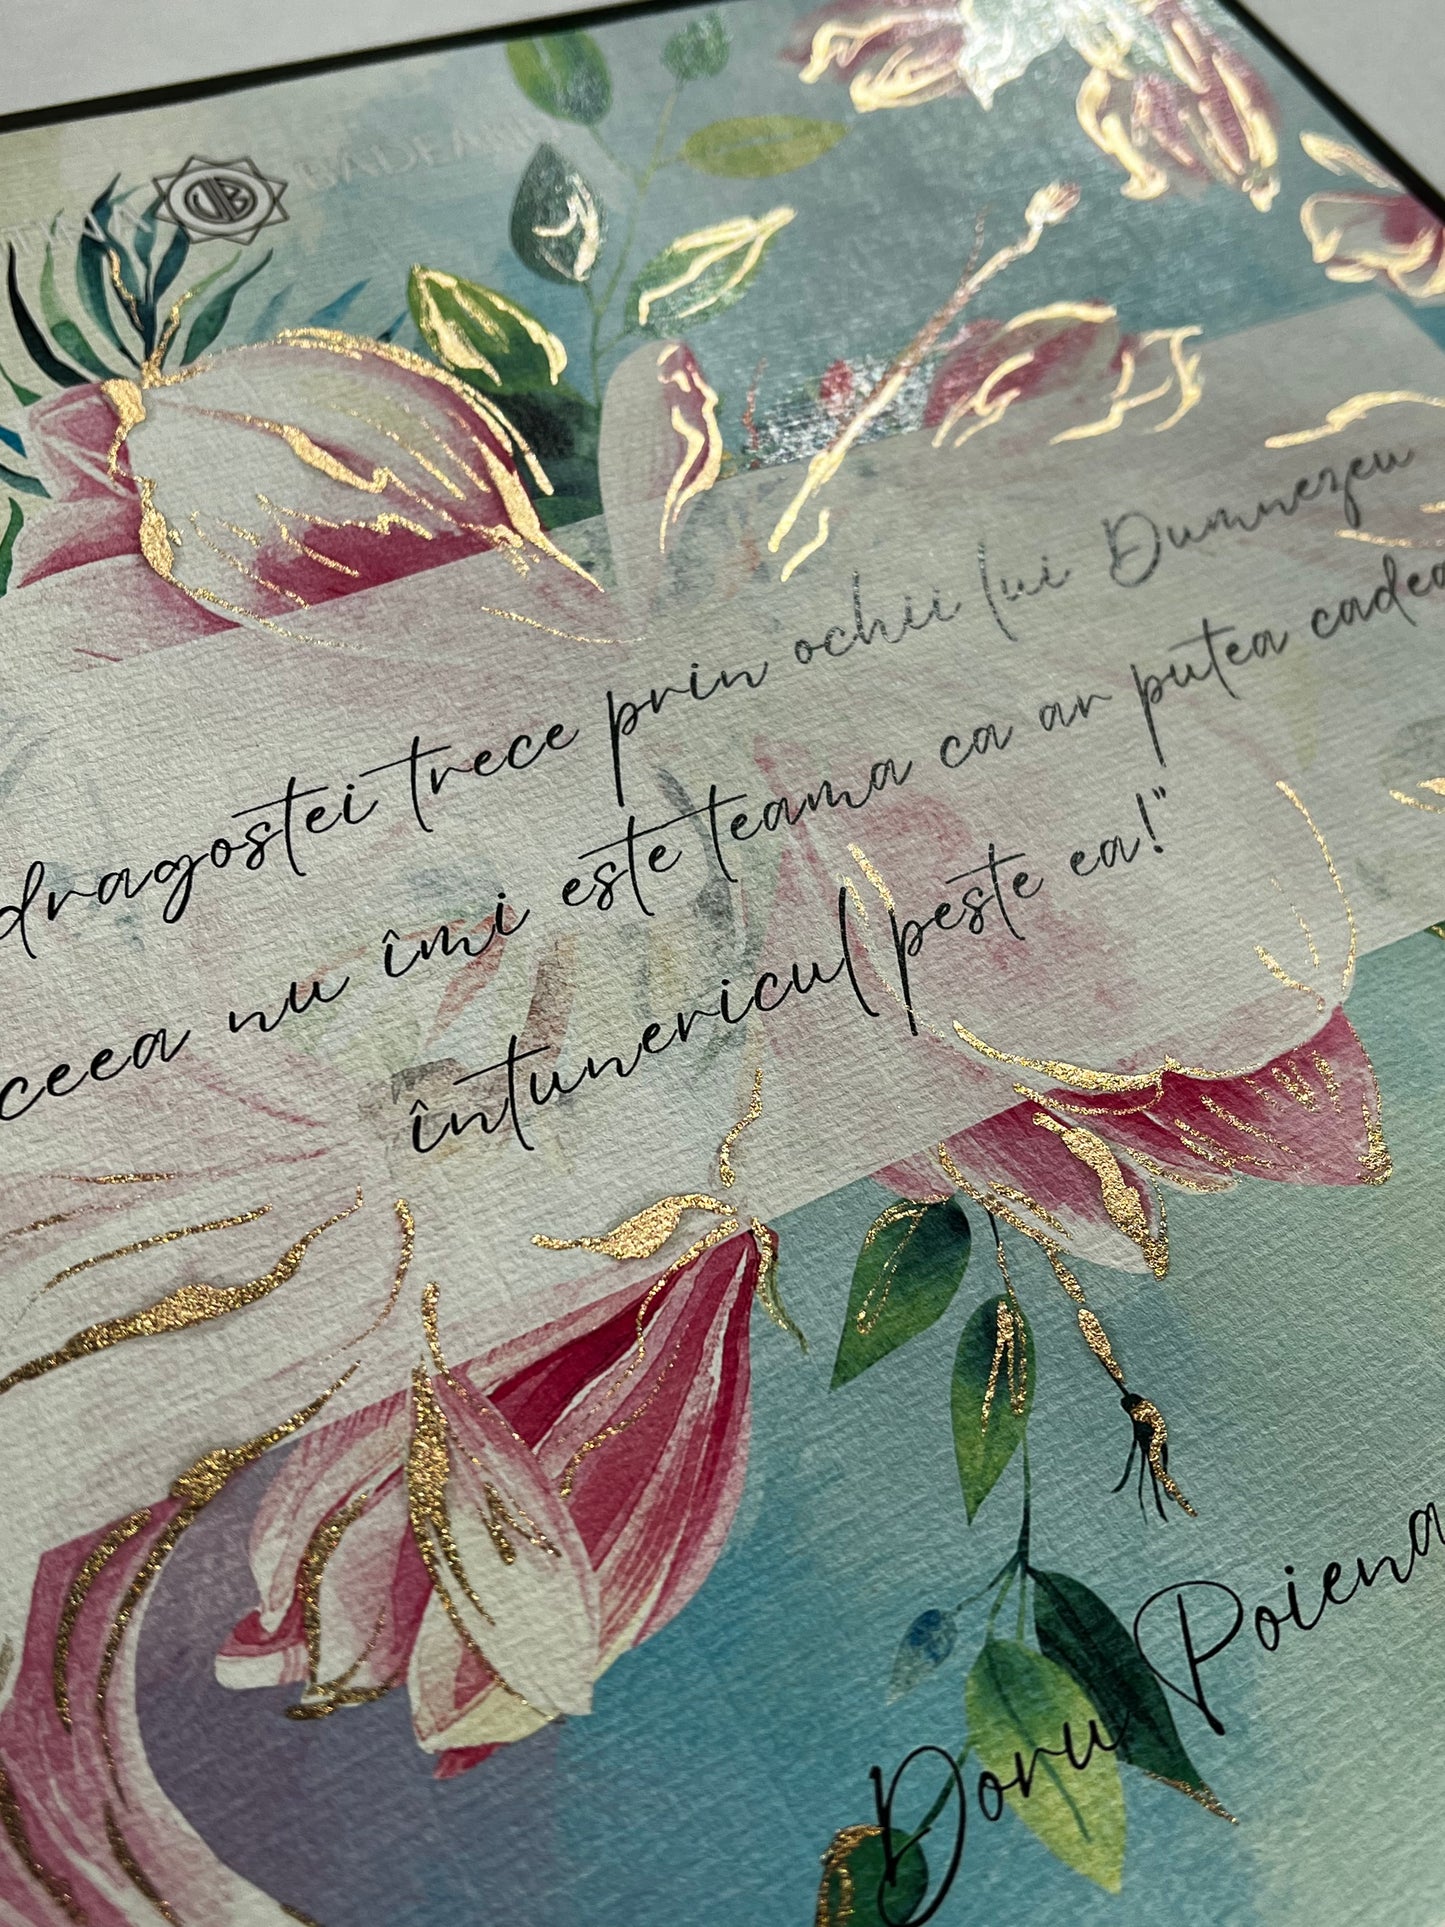 VB BADEA
dragostei trece prin ochii lui Dumnezeu
ceea nu îmi este teama ca ar putea cadea
întunericul peste ea!"
Doru Poiena